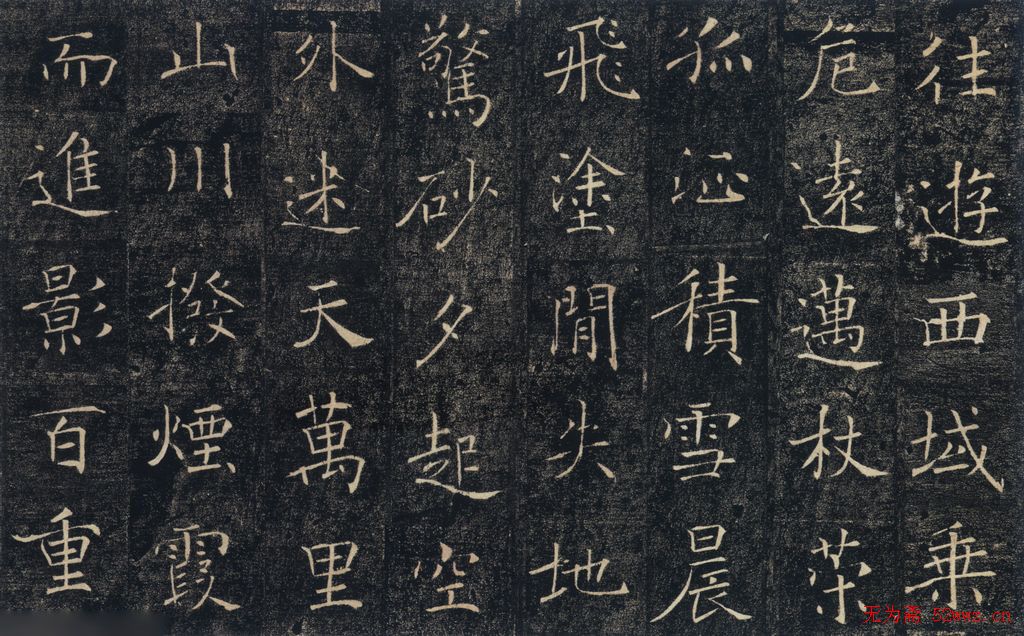 往遊西域乘
危遠邁杖策
孤征積雪晨
飛塗閒失地
驚砂夕起空
外迷天萬里
山川撥煙霞
而進影百重
无为斋 52wwz.cn